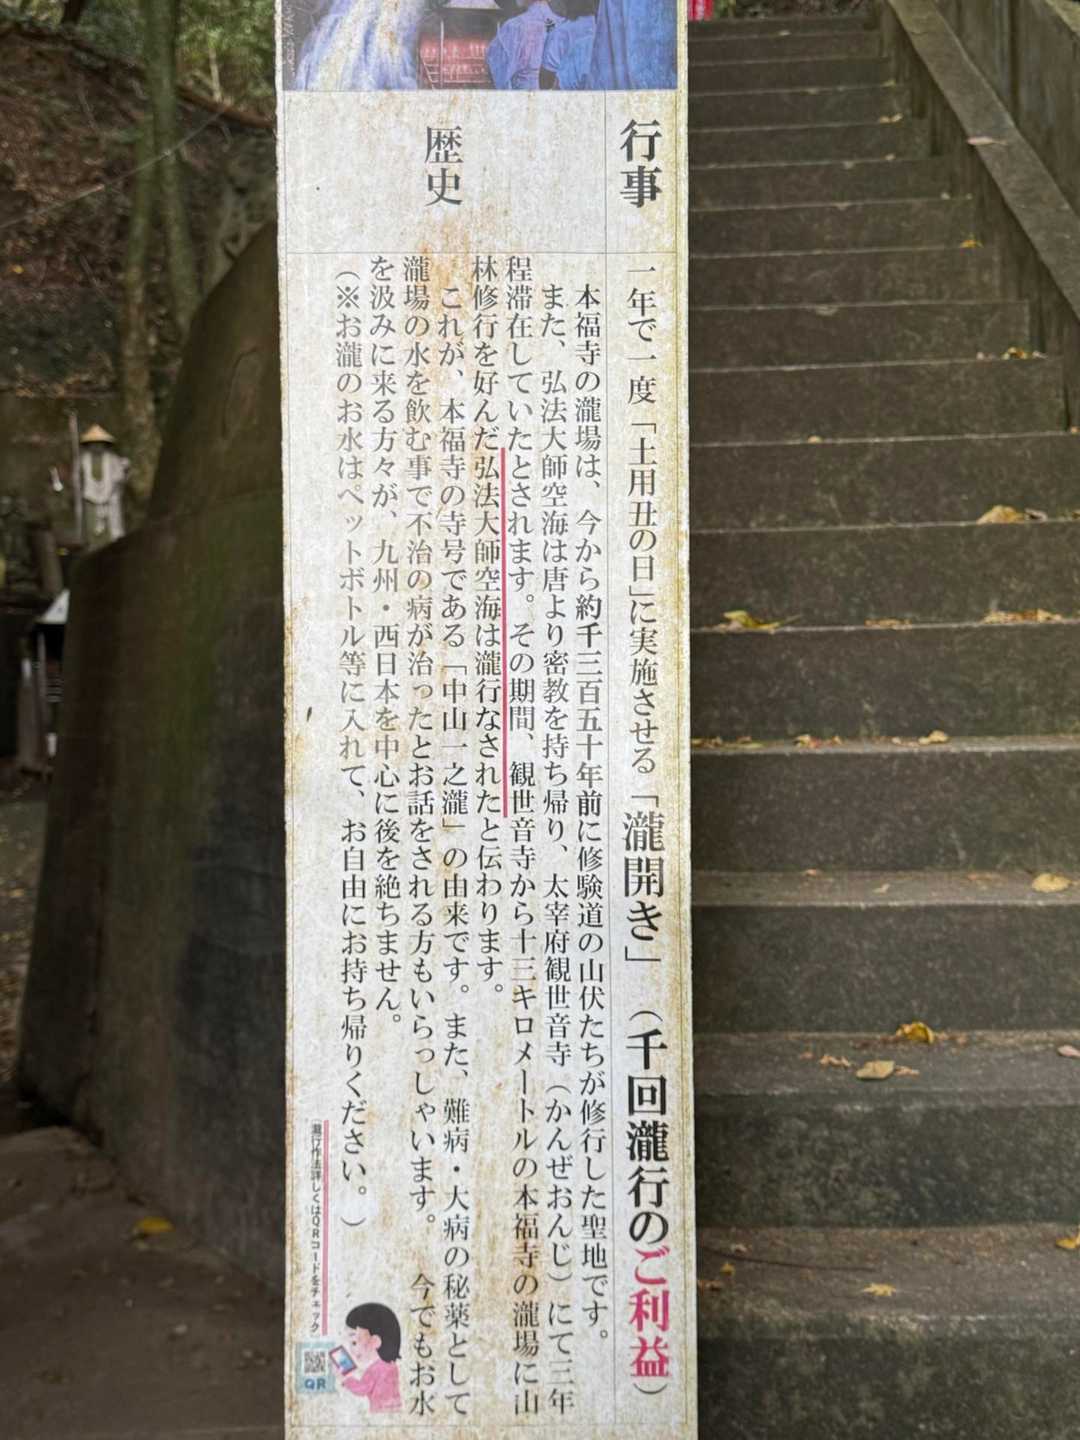 行事
一年で一度「土用丑の日」に実施させる「瀧開き」（千回瀧行のご利益）
歴史
本福寺の瀧場は、今から約千三百五十年前に修験道の山伏たちが修行した聖地です。
また、弘法大師空海は唐より密教を持ち帰り、太宰府観世音寺（かんぜおんじ）にて三年
程滞在していたとされます。その期間、観世音寺から十三キロメートルの本福寺の瀧場に山
林修行を好んだ弘法大師空海は瀧行なされたと伝わります。
これが、本福寺の寺号である「中山一之瀧」の由来です。また、難病・大病の秘薬として
瀧場の水を飲む事で不治の病が治ったとお話をされる方もいらっしゃいます。　今でもお水
を汲みに来る方々が、九州・西日本を中心に後を絶ちません。
（※お瀧のお水はペットボトル等に入れて、お自由にお持ち帰りください。）
瀧行作法詳しくはQRコードをチェック
QR